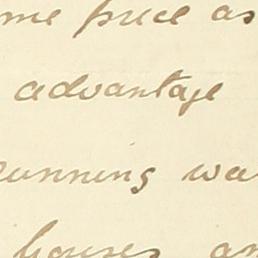 me price as
advantage
running wa
houses an